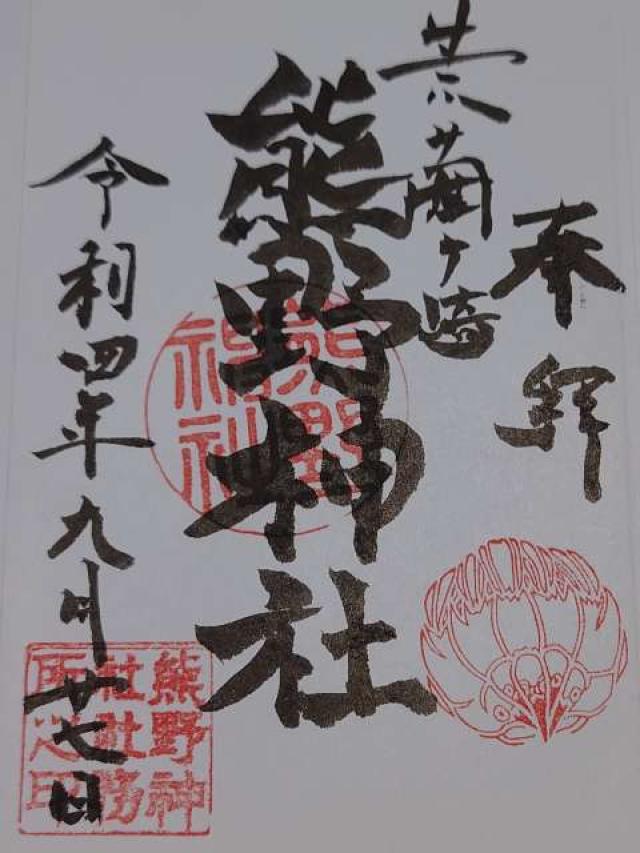 奉拝
荒藺ヶ崎
熊野神社
熊野
神社
令和四年九月廿七日
熊野神
社社務
所之印